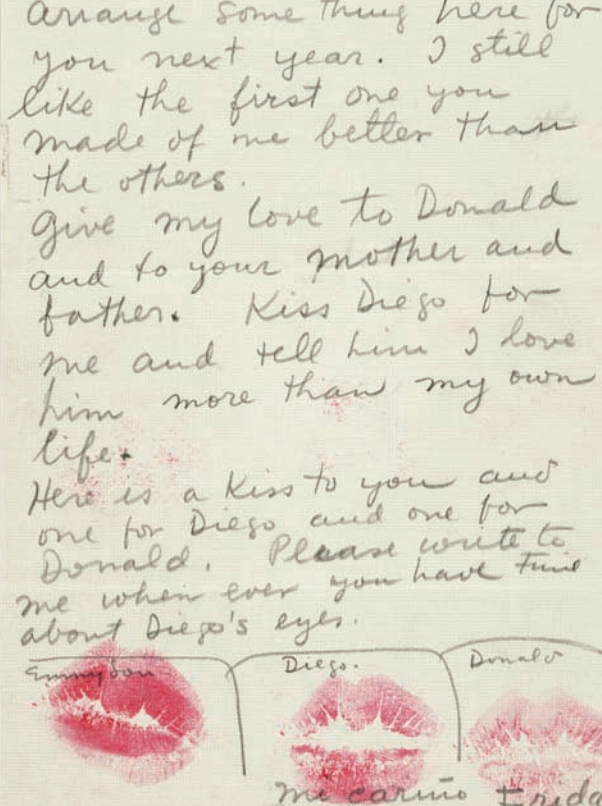 arrange some thing here for
you next year. I still
like the first one you
made of me better than
the others.
Give my love to Donald
and to your mother and
father. Kiss Diego for
me and tell him I love
him more than my own
life.
Here is a Kiss to you and
one for Diego and one for
Donald. Please write to
me when ever you have time
about Diego's eyes.
Emmy Lou Diego. Donald
Mi cariño Frida